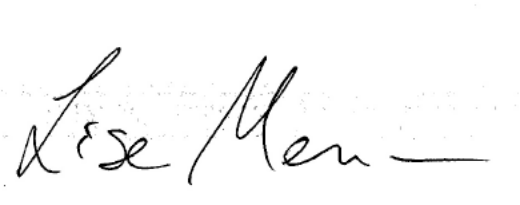 Lise Men